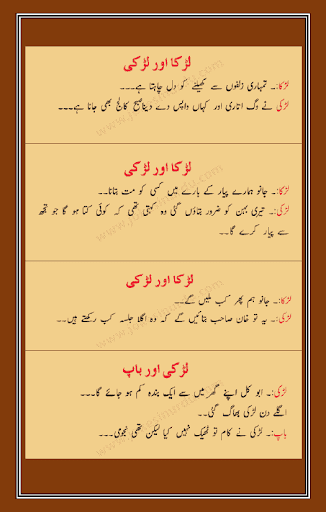 لڑکا اور لڑکی
لڑکا:۔ تمہاری زلفوں سے کھیلنے کو دل چاہتا ہے۔۔۔
لڑکی نے وگ اتاری اور کہاں واپس دے دیناصبح کالج بھی جانا ہے۔۔۔
لڑکا اور لڑکی
لڑکا:۔ جانو ہمارے پیار کے بارے میں کسی کو مت بتانا۔۔
لڑکی:۔ تیری بہن کو ضرور بتاؤں گی وہ کہتی تھی کہ کوئی کتا ہو گا جو تجھ
سے پیار کرے گا۔۔
لڑکا اور لڑکی
لڑکا:۔ جانو ہم پھر کب ملیں گے۔۔
لڑکی:۔ یہ تو خان صاحب بتائیں گے کہ وہ اگلا جلسہ کب رکھتے ہیں۔۔
لڑکی اور باپ
لڑکی:۔ ابو کل اپنے گھر میں سے ایک بندہ کم ہو جائے گا۔۔۔
اگلے دن لڑکی بھاگ گئی۔۔
باپ:۔ لڑکی نے کام تو ٹھیک نہیں کیا لیکن تھی نجومی۔۔۔